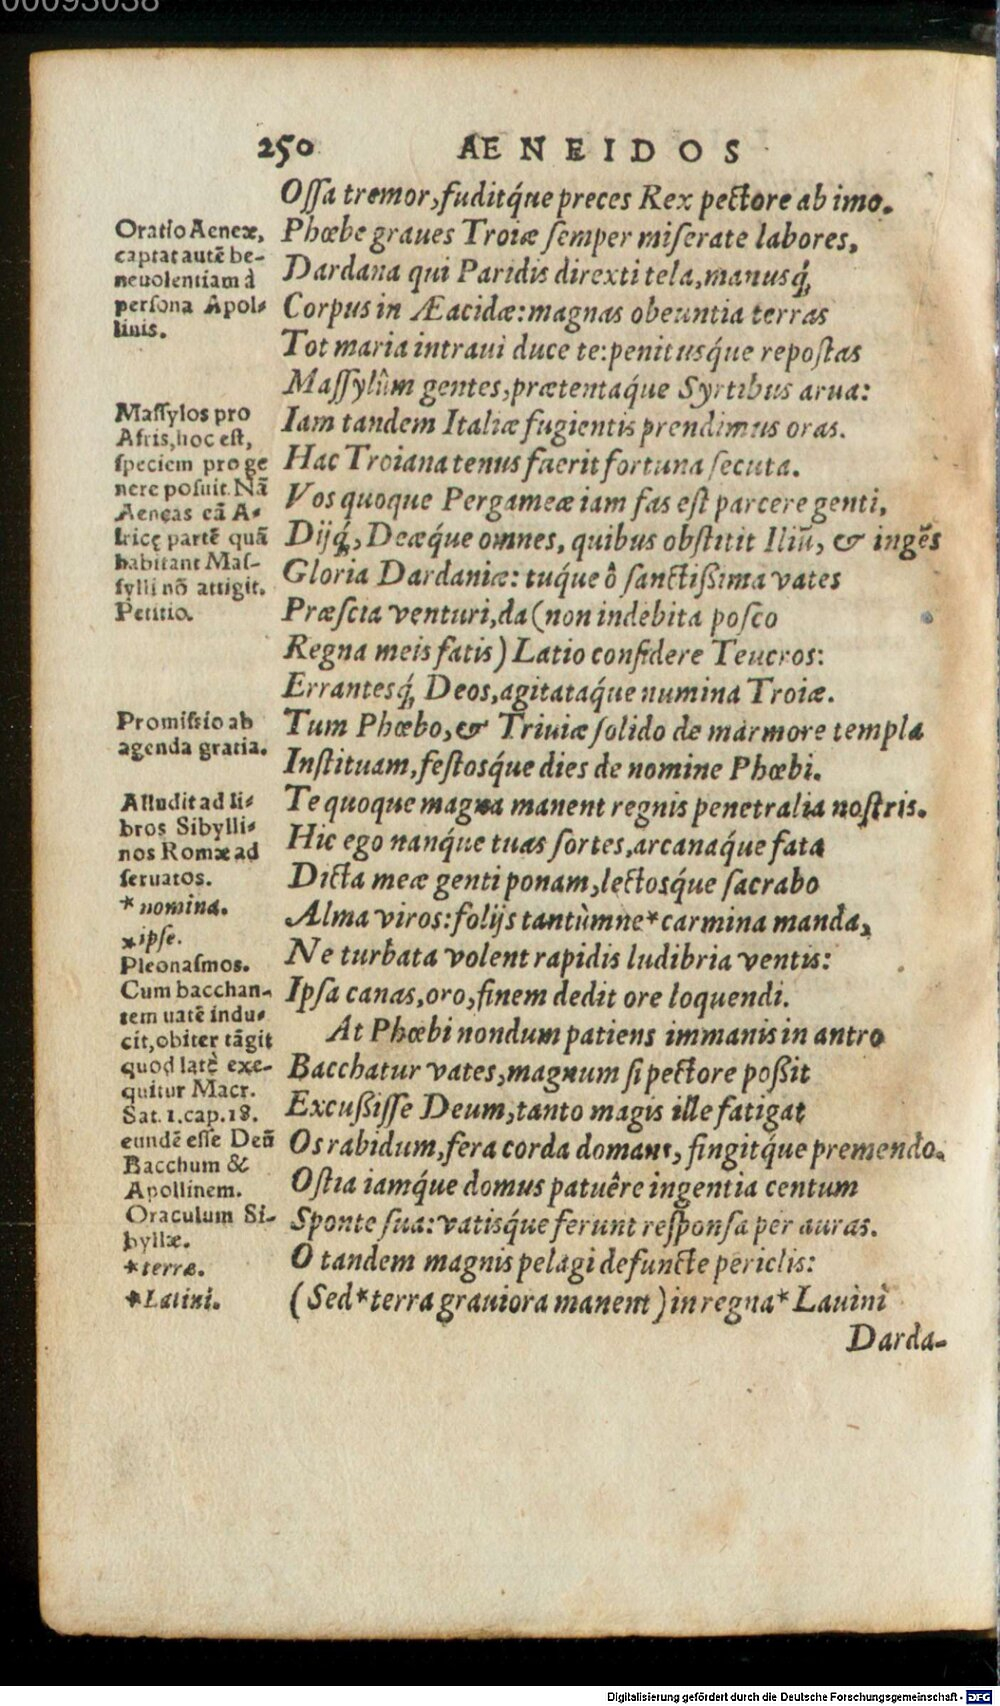 00093038
250 AENEIDOS
Ossa tremor, fuditq́ue preces Rex pectore ab imo.
Phœbe graues Troiæ semper miserate labores,
Dardana qui Paridis direxti tela, manusq́;
Corpus in Æacidæ: magnas obeuntia terras
Tot maria intraui duce te: penitusq́ue repostas
Massylûm gentes, prætentaq́ue Syrtibus arua:
Iam tandem Italiæ fugientis prendimus oras.
Hac Troiana tenus fuerit fortuna secuta.
Vos quoque Pergameæ iam fas est parcere genti,
Dijq́;, Deæq́ue omnes, quibus obstitit Iliū, & ingēs
Gloria Dardaniæ: tuq́ue ô sanctissima vates
Præscia venturi, da (non indebita posco
Regna meis fatis) Latio confidere Teucros:
Errantesq́; Deos, agitataq́ue numina Troiæ.
Tum Phœbo, & Triuiæ solido de marmore templa
Instituam, festosq́ue dies de nomine Phœbi.
Te quoque magna manent regnis penetralia nostris.
Hic ego nanq́ue tuas sortes, arcanaq́ue fata
Dicta meæ genti ponam, lectosq́ue sacrabo
Alma viros: folijs tantùm ne* carmina manda,
Ne turbata volent rapidis ludibria ventis:
Ipsa canas, oro, finem dedit ore loquendi.
At Phœbi nondum patiens immanis in antro
Bacchatur vates, magnum si pectore possit
Excussisse Deum, tanto magis ille fatigat
Os rabidum, fera corda domans, fingitq́ue premendo.
Ostia iamq́ue domus patuêre ingentia centum
Sponte sua: vatisq́ue ferunt responsa per auras.
O tandem magnis pelagi defuncte periclis:
(Sed* terra grauiora manent) in regna* Lauini
Darda-
Oratio Aeneæ,
captat autē be-
neuolentiam à
persona Apol-
linis.
Massylos pro
Afris, hoc est,
speciem pro ge
nere posuit. Nā
Aeneas eā A-
fricę partē quā
habitant Mas-
sylli nō attigit.
Petitio.
Promissio ab
agenda gratia.
Alludit ad li-
bros Sibylli-
nos Romæ ad
seruatos.
* nomina.
* ipse.
Pleonasmos.
Cum bacchan-
tem uatē indu-
cit, obiter tāgit
quod latè exe-
quitur Macr.
Sat. 1. cap. 18.
eundē esse Deū
Bacchum &
Apollinem.
Oraculum Si-
byllæ.
* terræ.
* Latini.
Digitalisierung gefördert durch die Deutsche Forschungsgemeinschaft - DFG